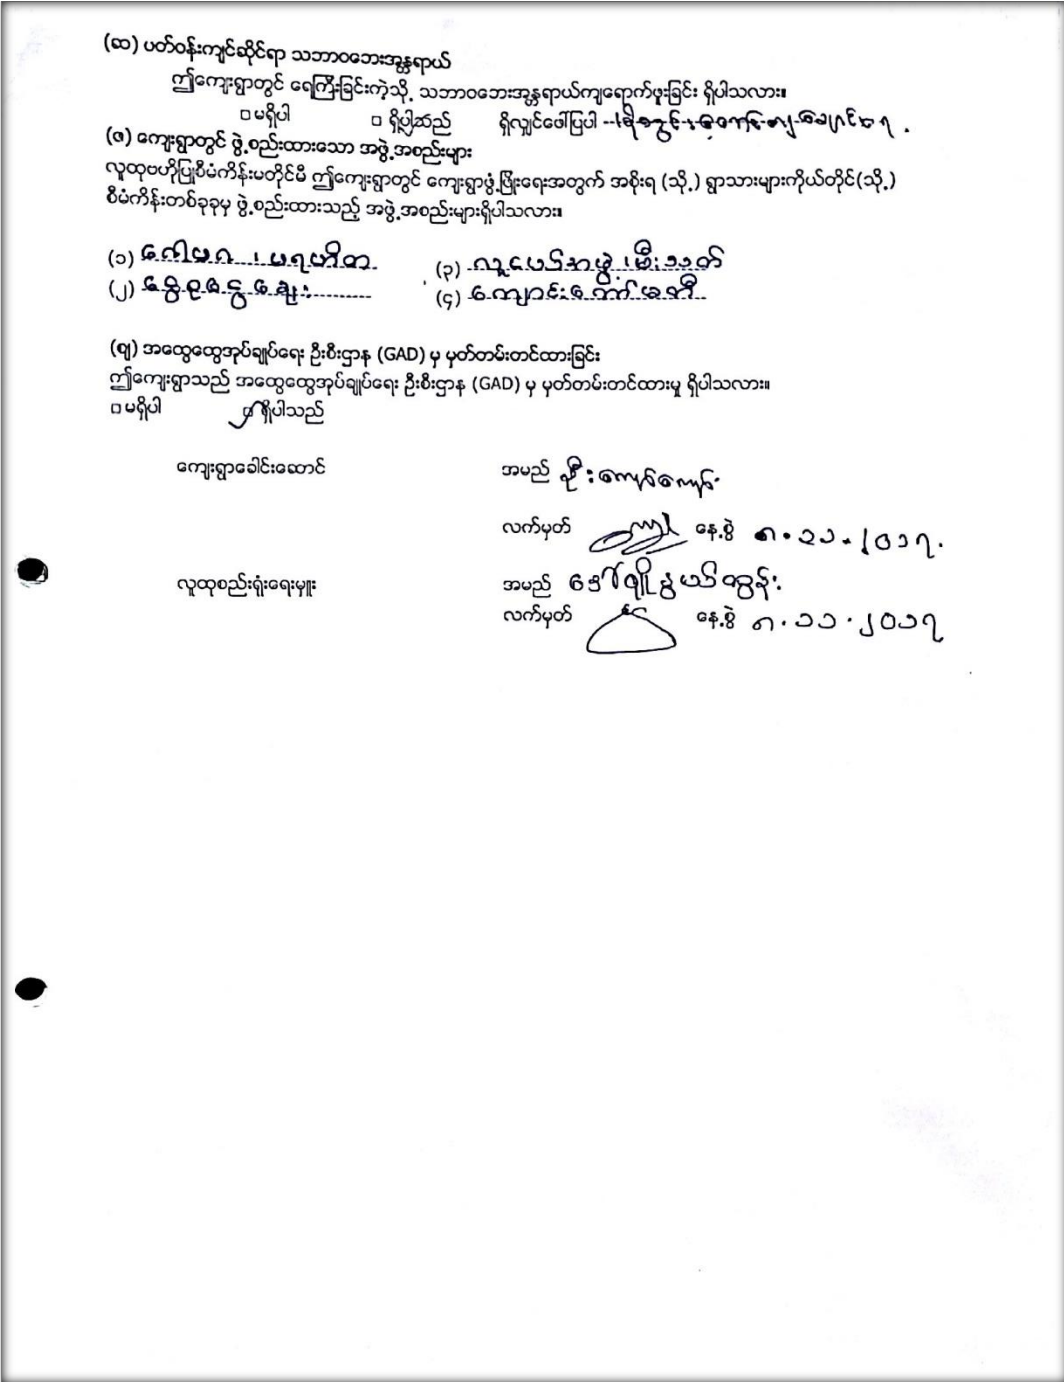 (ဆ) ပတ်ဝန်းကျင်ဆိုင်ရာ သဘာဝဘေးအန္တရာယ်
ဤကျေးရွာတွင် ရေကြီးခြင်းကဲ့သို့ သဘာဝဘေးအန္တရာယ်ကျရောက်ဖူးခြင်း ရှိပါသလား။
□ မရှိပါ □ ရှိပါသည် ရှိလျှင်ဖေါ်ပြပါ
(ဇ) ကျေးရွာတွင် ဖွဲ့စည်းထားသော အဖွဲ့အစည်းများ
လူထုဗဟိုပြုစီမံကိန်းမတိုင်မီ ဤကျေးရွာတွင် ကျေးရွာဖွံ့ဖြိုးရေးအတွက် အစိုးရ (သို့) ရွာသားများကိုယ်တိုင်(သို့)
စီမံကိန်းတစ်ခုခုမှ ဖွဲ့စည်းထားသည့် အဖွဲ့အစည်းများရှိပါသလား။
(၁) ဂေါပက ၊ ပရဟိတ (၃) လူငယ်အဖွဲ့၊ မီးသတ်
(၂) ငွေစုငွေချေး (၄) ကျောင်းကော်မတီ
(ဈ) အထွေထွေအုပ်ချုပ်ရေး ဦးစီးဌာန (GAD) မှ မှတ်တမ်းတင်ထားခြင်း
ဤကျေးရွာသည် အထွေထွေအုပ်ချုပ်ရေး ဦးစီးဌာန (GAD) မှ မှတ်တမ်းတင်ထားမှု ရှိပါသလား။
□ မရှိပါ ရှိပါသည်
ကျေးရွာခေါင်းဆောင် အမည် ဦးကျော်ကျော်
လက်မှတ် နေ့စွဲ ၈.၁၁.၂၀၁၇.
လူထုစည်းရုံးရေးမှူး အမည် ဒေါ်ချိုနွယ်ထွန်း
လက်မှတ် နေ့စွဲ ၈.၁၁.၂၀၁၇